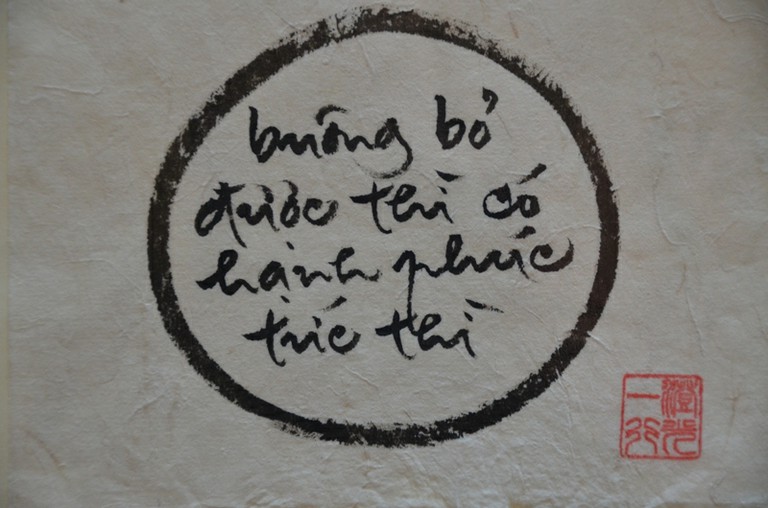 buông bỏ
được thì có
hạnh phúc
tức thì
澄光
一行